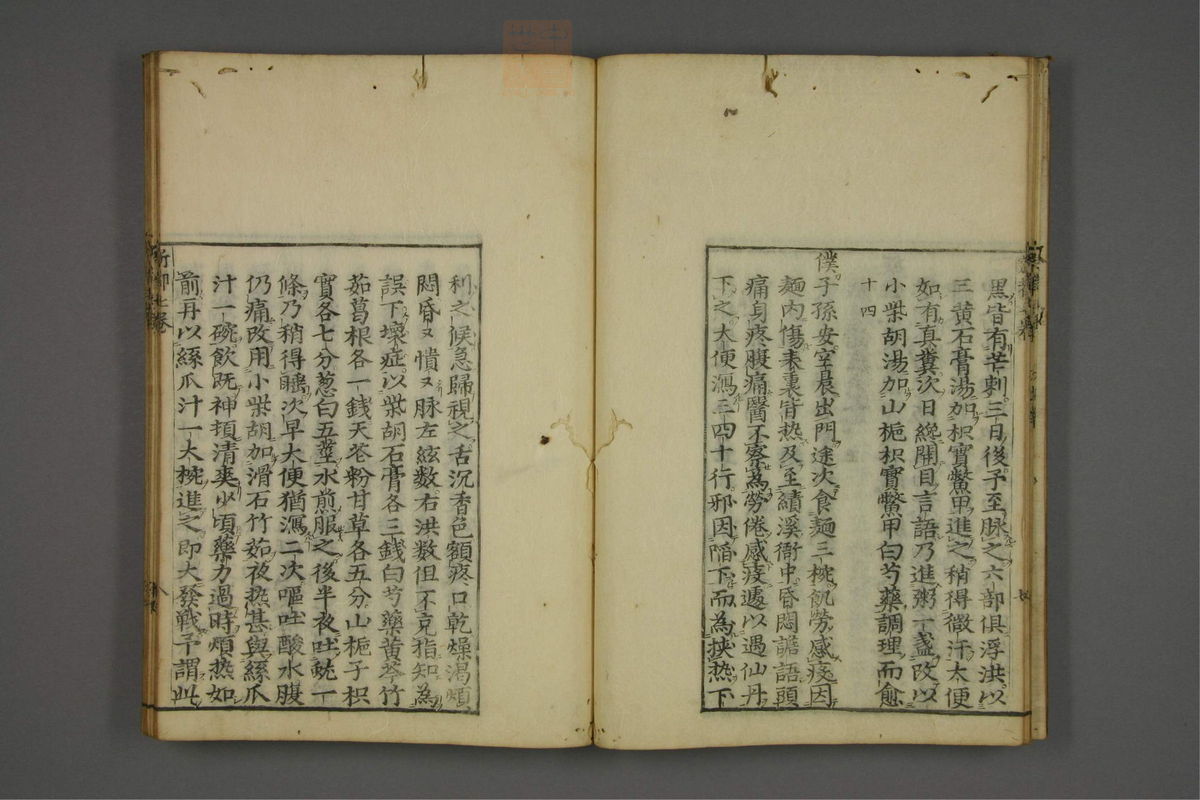 黑皆有芒刺三日後予至脉之六部俱浮洪以
三黄石膏湯加枳實鱉甲進之稍得微汗大便
如有真糞次日纔開目言語乃進粥一盞改以
小柴胡湯加山梔枳實鱉甲白芍藥調理而愈
十四
僕子孫安空晨出門途次食麺三椀飢勞感疫因
麺内傷表裏皆热及至績溪衙中昏悶譫語頭
痛身疼腹痛醫不察為勞倦感疫遽以遇仙丹
下之大便瀉三四十行邪因陥下而為挟热下
利之候急歸視之舌沉香色額疼口乾燥渴煩
悶昏又憒又脉左絃数右洪数但不克指知為
誤下壞症以柴胡石膏各三錢白芍藥黄芩竹
茹葛根各一錢天花粉甘草各五分山梔子枳
實各七分葱白五莖水煎服之後半夜吐蚘一
條乃稍得睡次早大便猶瀉二次嘔吐酸水腹
仍痛改用小柴胡加滑石竹茹夜热甚與絲瓜
汁一碗飲既神頓清爽少頃藥力過時煩热如
前再以絲瓜汁一大椀進之即大發戦予謂此